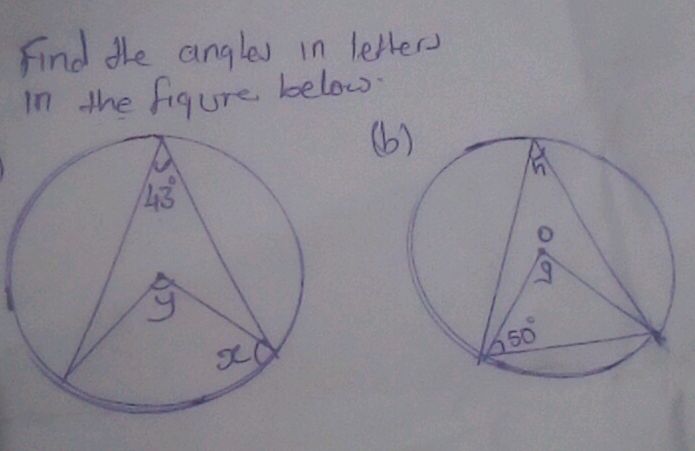 Find the angles in letters
in the figure below.
)
(b)
43°
y
x
h
O
g
50°